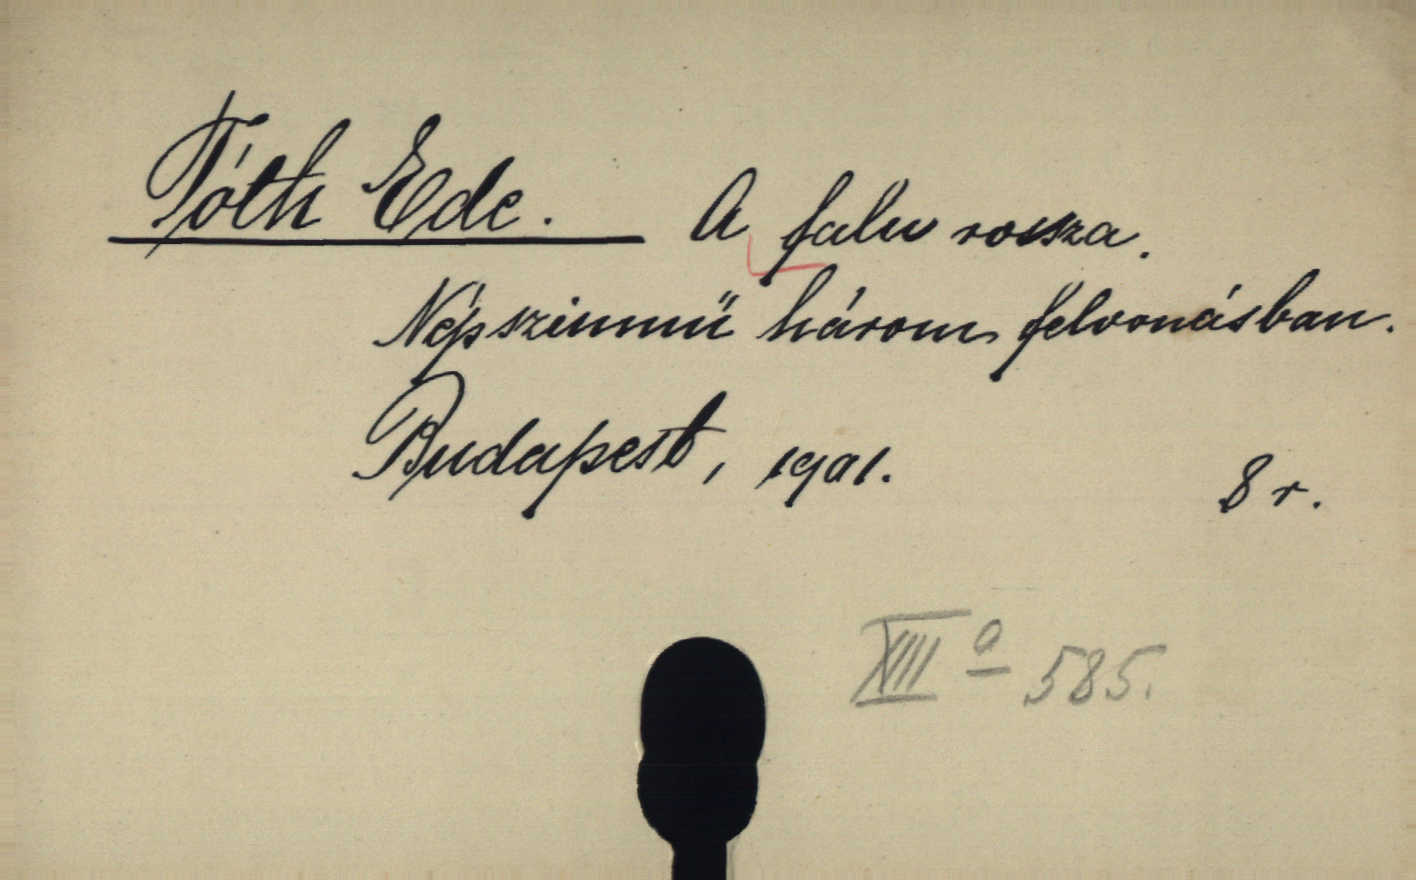 Tóth Ede. A falu rossza.
Népszinmű három felvonásban.
Budapest, 1901. 8 r.
XIII a 585.